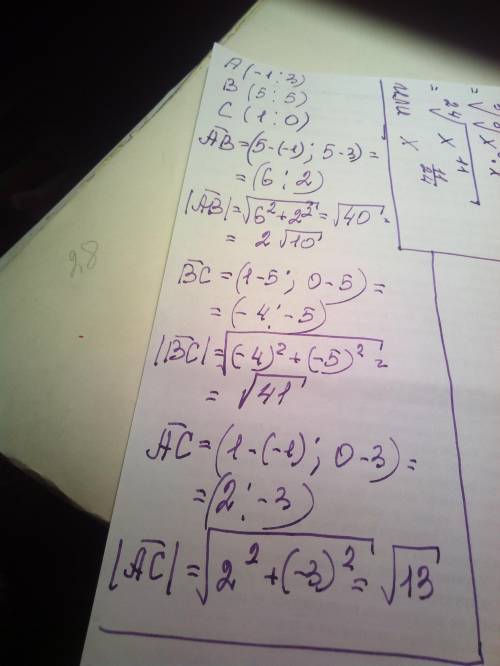 A (-1; 3)
B (5; 5)
C (1; 0)
AB = (5-(-1); 5-3) =
= (6; 2)
|AB| = √6²+2² = √40 =
= 2√10
BC = (1-5; 0-5) =
= (-4; -5)
|BC| = √(-4)²+(-5)² =
= √41
AC = (1-(-1); 0-3) =
= (2; -3)
|AC| = √2²+(-3)² = √13
28